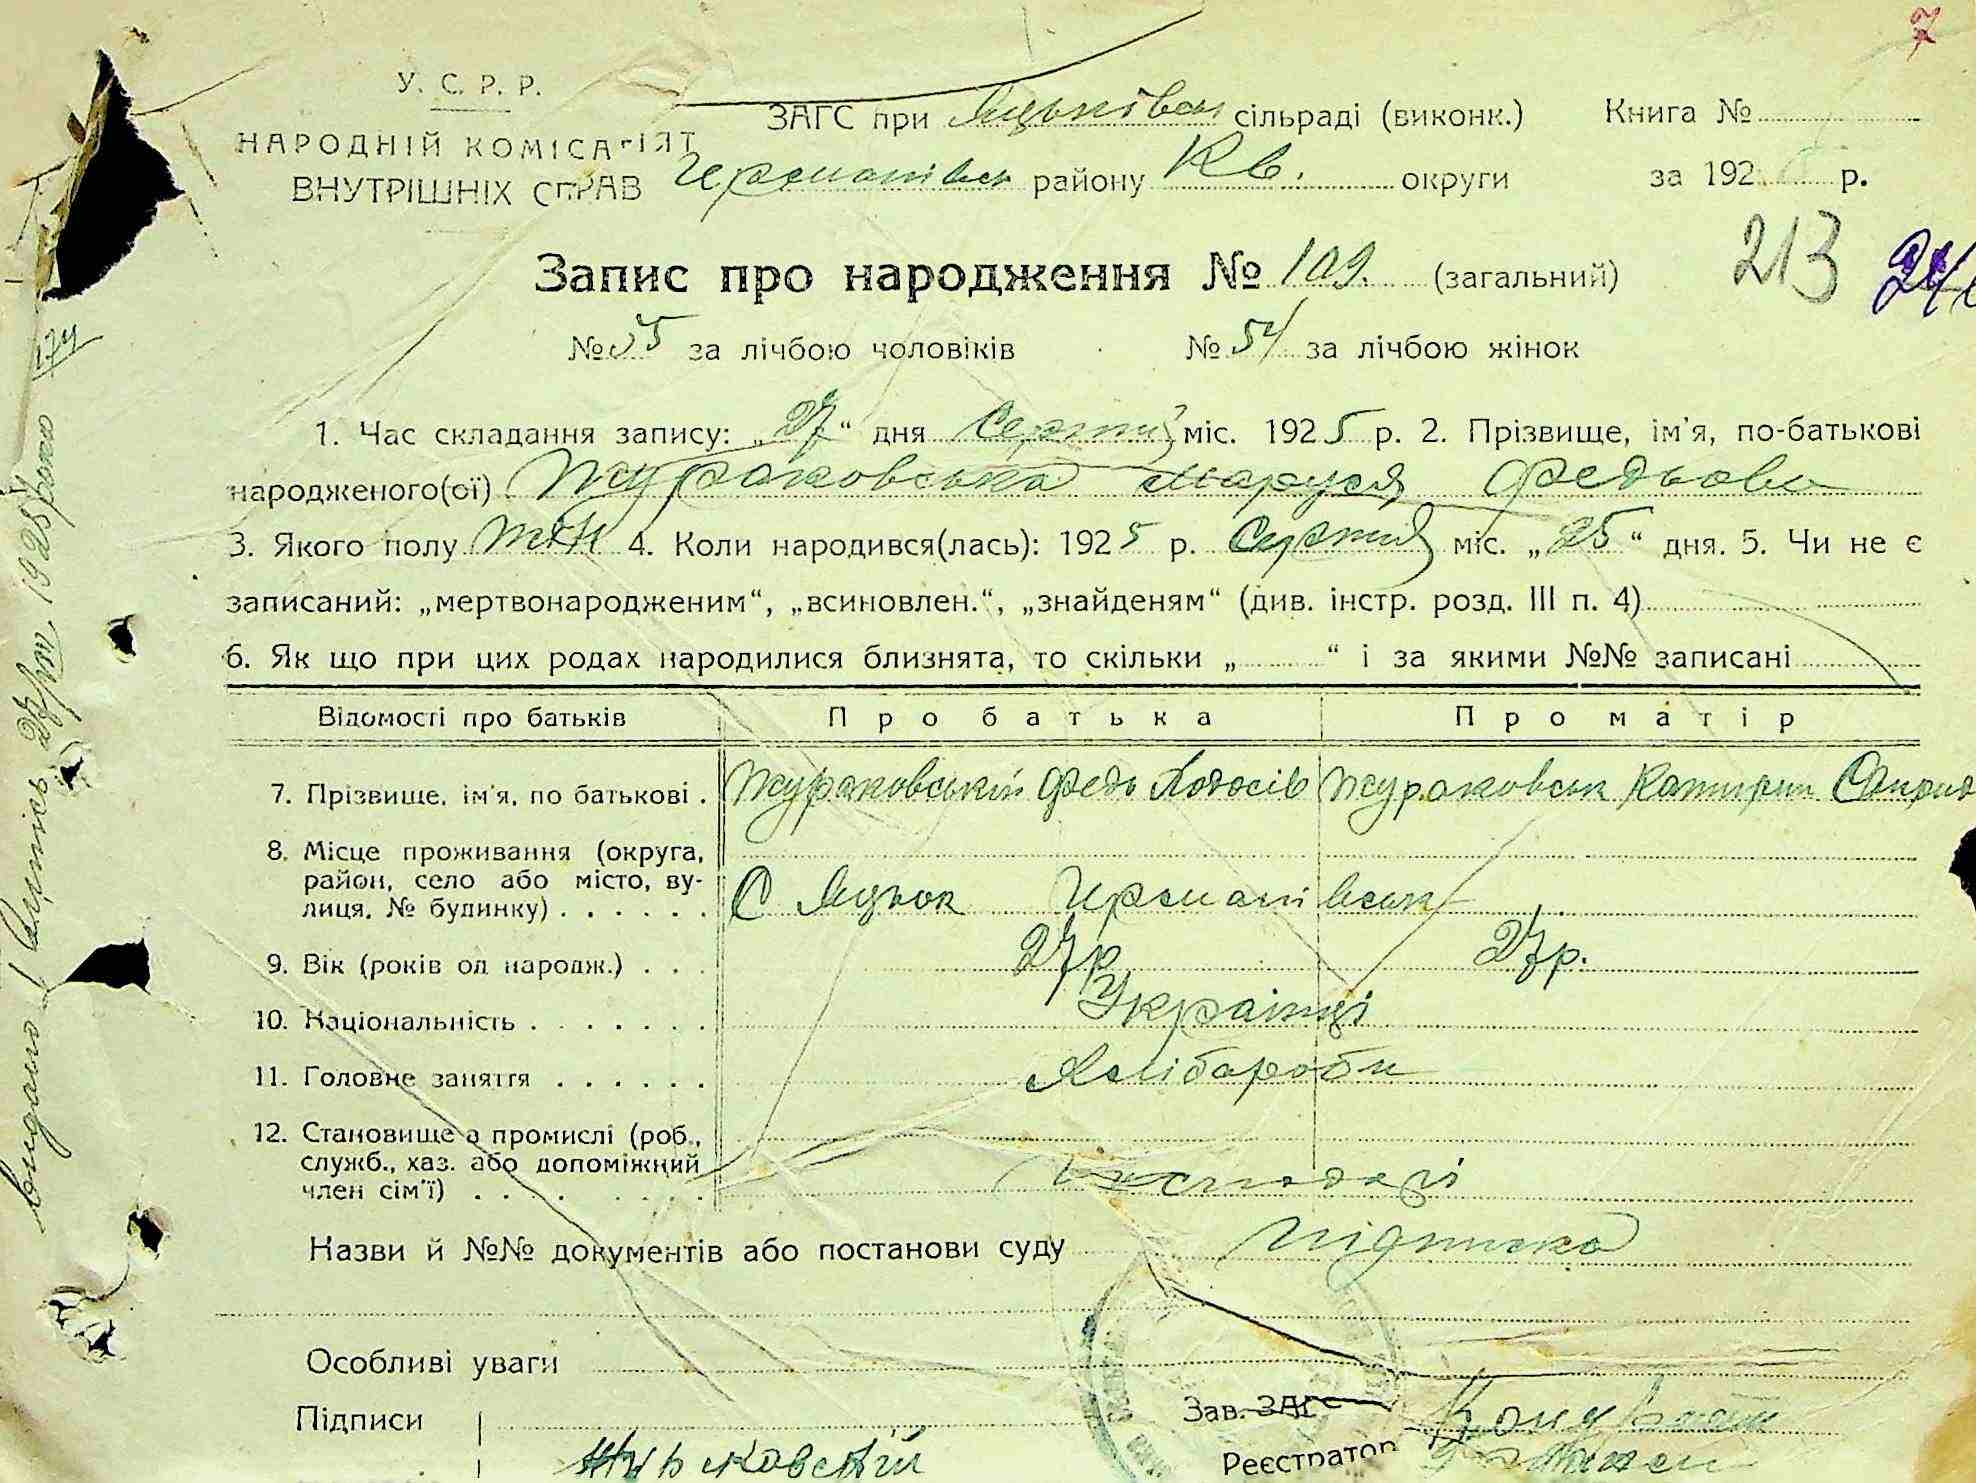 7
У. С. Р. Р.
НАРОДНІЙ КОМІСАРІЯТ
ВНУТРІШНІХ СПРАВ
ЗАГС при Яцьківск сільраді (виконк.) Книга №
Германівск району Кв. округи за 192 р.
Запис про народження № 109. (загальний) 213
№ 55 за лічбою чоловіків № 54 за лічбою жінок
1. Час складання запису: „27“ дня Серпня міс. 1925 р. 2. Прізвище, ім'я, по-батькові
народженого(ої) Жураковська Маруся Федьова
3. Якого полу жін 4. Коли народився(лась): 1925 р. Серпня міс. „25“ дня. 5. Чи не є
записаний: „мертвонародженим“, „всиновлен.“, „знайденям“ (див. інстр. розд. III п. 4)
6. Як що при цих родах народилися близнята, то скільки „ “ і за якими №№ записані
Відомості про батьків Про батька Про матір
7. Прізвище, ім'я, по батькові . Жураковський Федь Тодосів Жураковськ Катерин Спирид
8. Місце проживання (округа,
район, село або місто, ву-
лиця, № будинку) . . . . . . С Яцьок Германівськ
9. Вік (років од народж.) . . . 27р 27р.
10. Національність . . . . . . . Українці
11. Головне заняття . . . . . . Хлібароби
12. Становище в промислі (роб.,
служб., хаз. або допоміжний
член сім'ї) . . . . . . . . Господарі
Назви й №№ документів або постанови суду підписка
Особливі уваги
Підписи Зав. ЗАГС
Жураковский Реєстратор